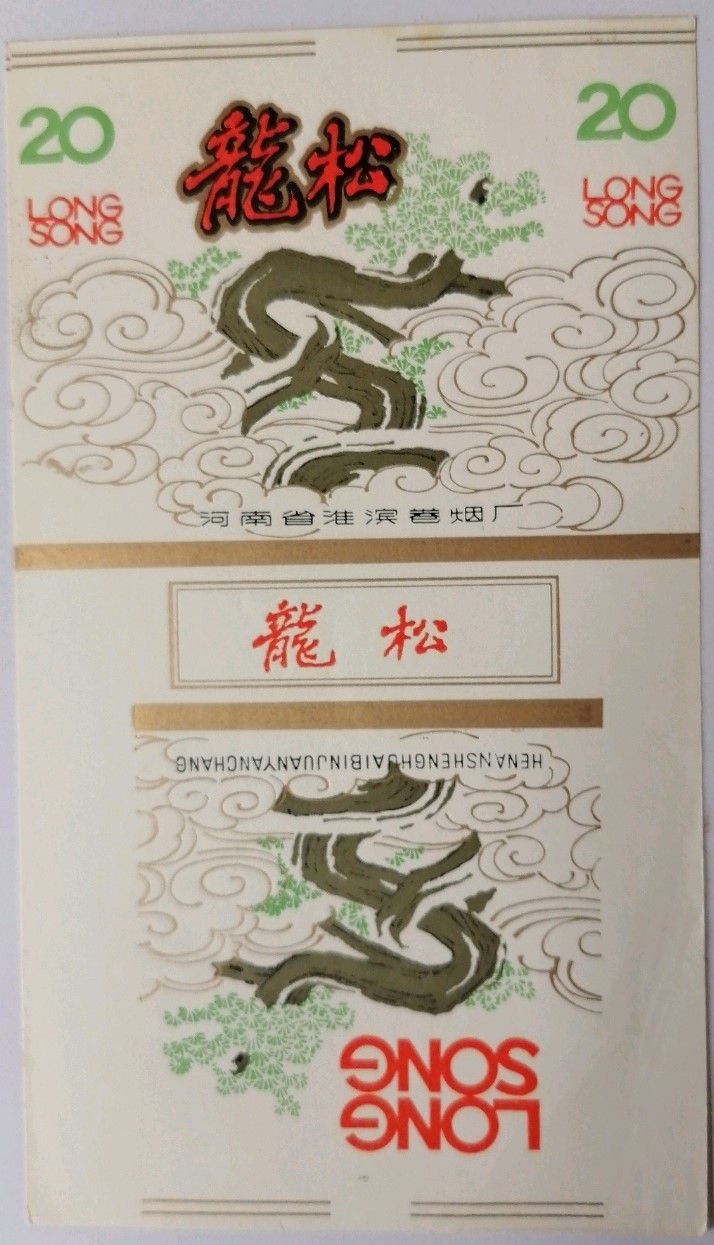 20
龍松
20
LONG
SONG
LONG
SONG
河南省淮滨卷烟厂
龍松
HENANSHENGHUAIBINJUANYANCHANG
LONG
SONG